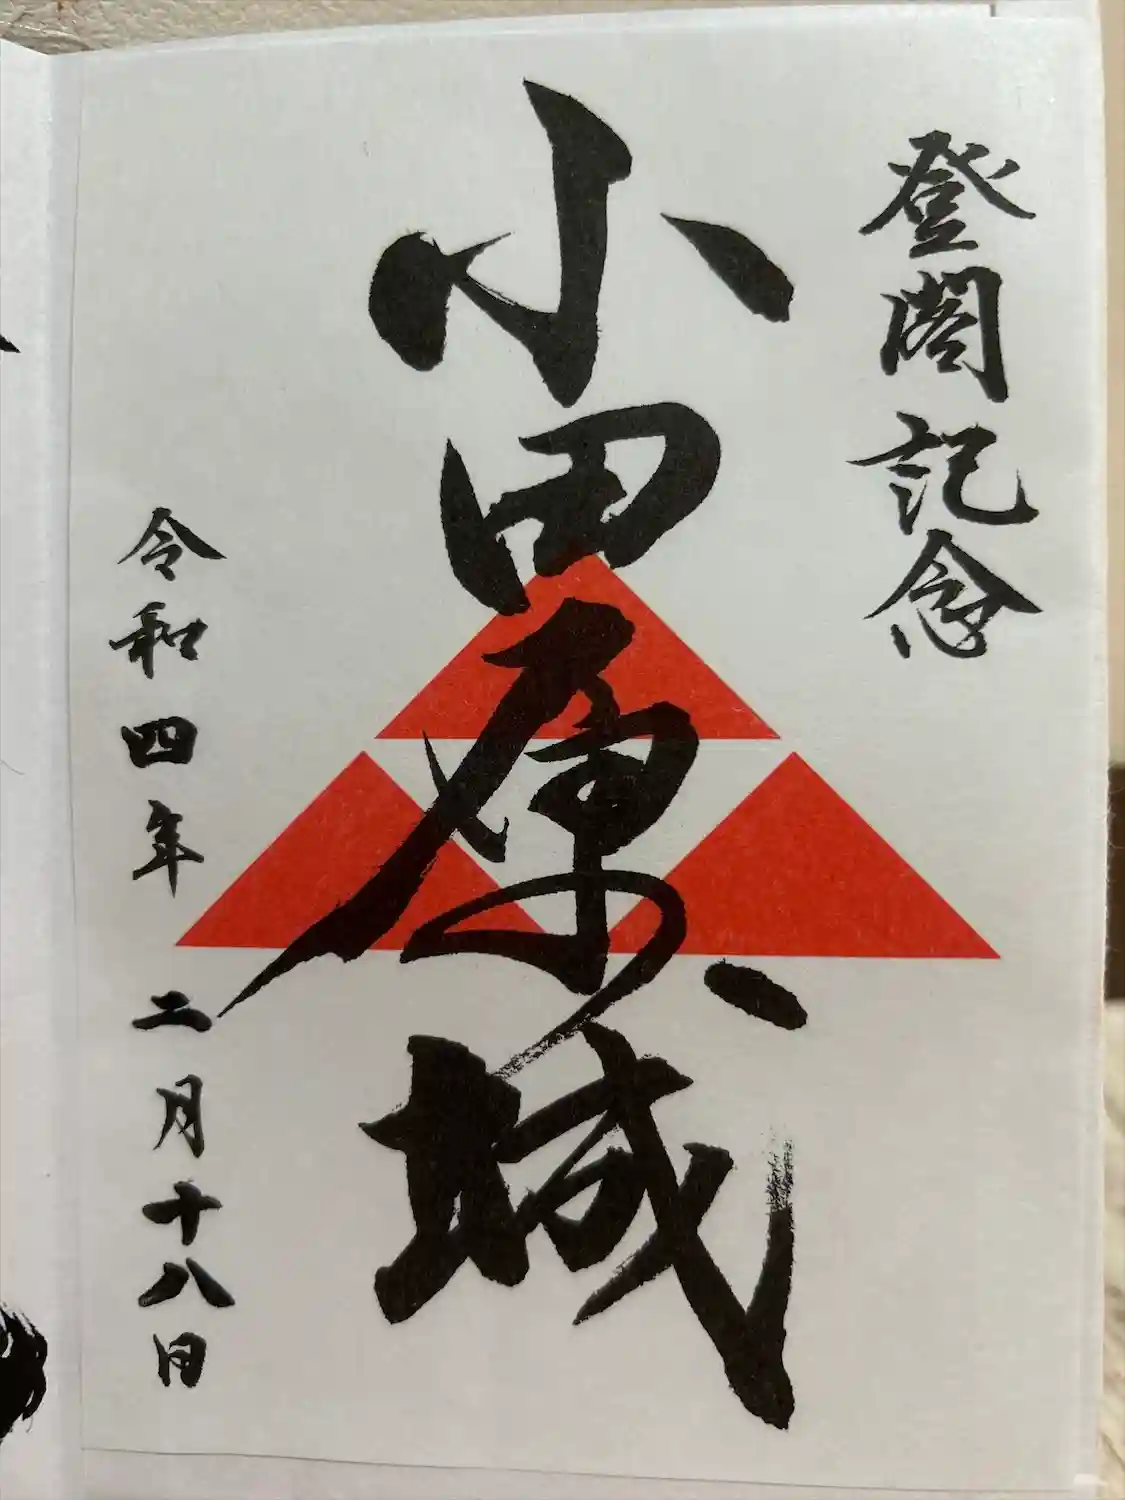 登閣記念
小田原城
令和四年 二月十八日